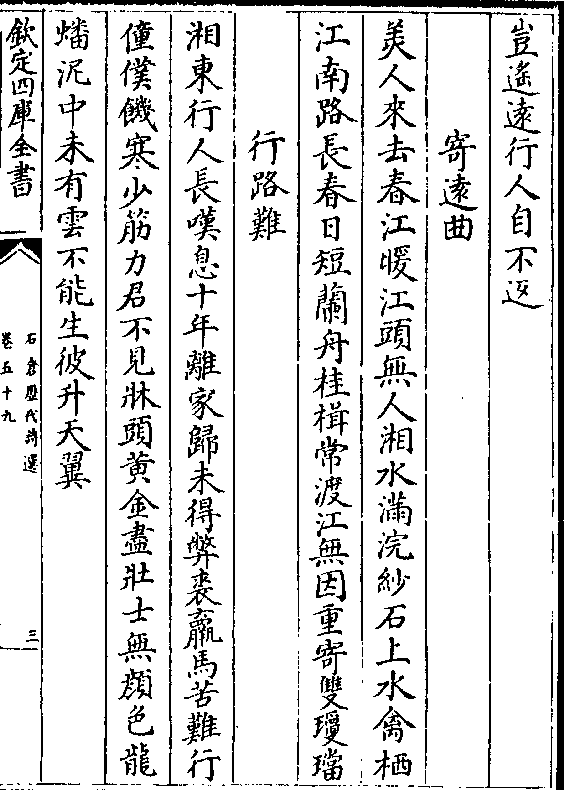 豈遙遠行人自不返
寄遠曲
美人來去春江暖江頭無人湘水滿浣紗石上水禽栖
江南路長春日短蘭舟桂楫常渡江無因重寄雙瓊璫
行路難
湘東行人長嘆息十年離家歸未得弊裘羸馬苦難行
僮僕饑寒少筋力君不見牀頭黄金盡壯士無顔色龍
蟠泥中未有雲不能生彼升天翼
欽定四庫全書
石倉歷代詩選
卷五十九
三